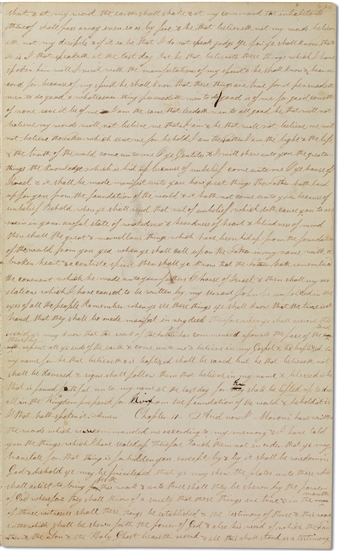 shut & at my word the earth shall shake & at my command the inhabitants
thereof shall pass away even so as by fire & he that believeth not my words believeth
not my disciples & if it so be that I do not speak judge ye for ye shall know that
it is I that speaketh at the last day but he that believeth these things which I have
spoken him will I visit with the manifestations of my spirit & he shall know & bear re
cord for because of my spirit he shall know that these things are true for it persuadeth
men to do good & whatsoever thing persuadeth men to do good is of me for good cometh
of none save it be of me I am the same that leadeth men to all good he that will not
believe my words will not believe me that I am & he that will not believe me will
not believe the father which sent me for behold I am the father I am the light & the life
& the truth of the world come unto me O ye Gentiles & I will shew unto you the greater
things the knowledge which is hid up because of unbelief come unto me O ye house of
Israel & it shall be made manifest unto you how great things the father hath laid
up for you from the foundation of the world & it hath not come unto you because of
unbelief behold when ye shall rend that vail of unbelief which doth cause you to re
main in your awful state of wickedness & hardness of heart & blindness of mind
then shall the great & marvelous things which have been hid up from the foundation
of the world from you yea when ye shall call upon the father in my name with a
broken heart & a contrite spirit then shall ye know that the father hath remembered
the covenant which he made unto your fathers O house of Israel & then shall my re
velations which I have caused to be written by my servant John be unfolded in the
eyes of all the people Remember when ye see these things ye shall know that the time is at
hand that they shall be made manifest in very deed
the work of the father has commenced upon the face of the
repent all ye ends of the earth & come unto me & believe in my Gospel & be baptized in
my name for he that believeth & is baptized shall be saved but he that believeth not
shall be damned & signs shall follow them that believe in my name & blessed is he
that is found faithful unto my name at the last day for he shall be lifted up to dw
ell in the kingdom prepared for him from the foundation of the world & behold it is
I that hath spoken it Amen Chapter And now I Moroni have written
the words which was commanded me according to my memory & I have told
you the things which I have sealed up therefore touch them not in order that ye may
translate for that thing is forbidden you except by & by it shall be wisdom in
God & behold ye may be privileged that ye may shew the plates unto those who
shall assist to bring forth this work & unto three shall they be shewn by the power of
God wherefore they shall know of a surety that these things are true & in the mouth
of three witnesses shall these things be established & the testimony of three & this work
in the which shall be shewn forth the power of God & also his word of which the fa
ther & the Son & the Holy Ghost beareth record & all this shall stand as a testimony